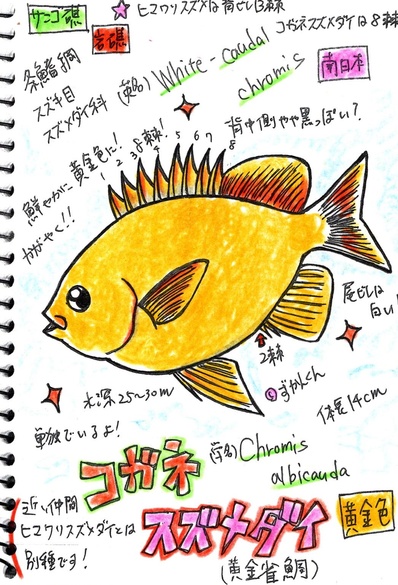 サンゴ礁
★ ヒマワリスズメは背ビレ13棘
コガネスズメダイは8棘
岩礁
南日本
条鰭綱
スズキ目
スズメダイ科
(英名) White-caudal
chromis
背中側やや黒っぽい?
黄金色に!
8棘!
1 2 3 4 5 6 7 8
鮮やかに
かがやく!!
尾ビレは
白い!
2棘
©ずかんくん
水深25~30m
体長14cm
単独でいるよ!
コガネ
スズメダイ
(学名) Chromis
albicauda
黄金色
近い仲間
ヒマワリスズメダイとは
別種です!
(黄金雀鯛)